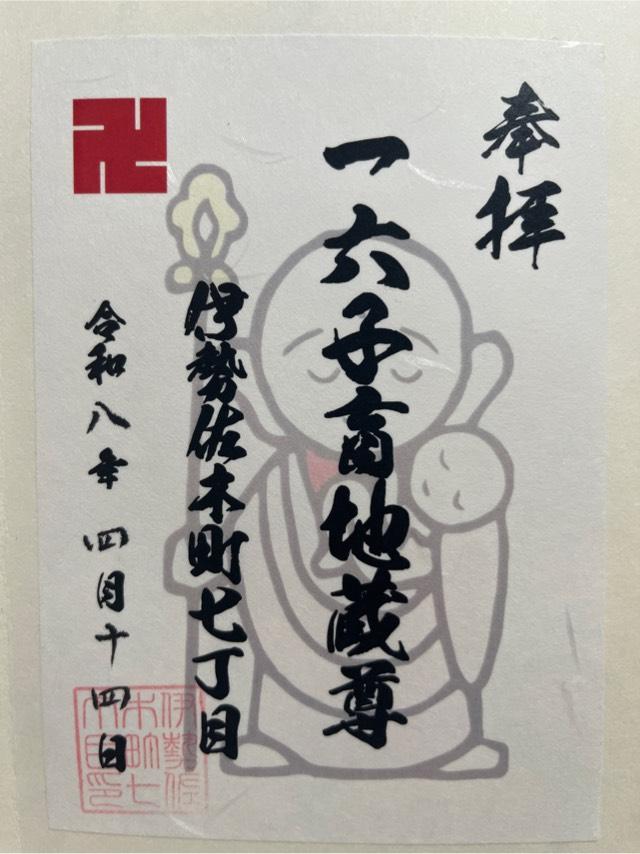 奉拝
一六子育地蔵尊
伊勢佐木町七丁目
令和八年 四月十四日
卍
伊勢佐
木町七
丁目印